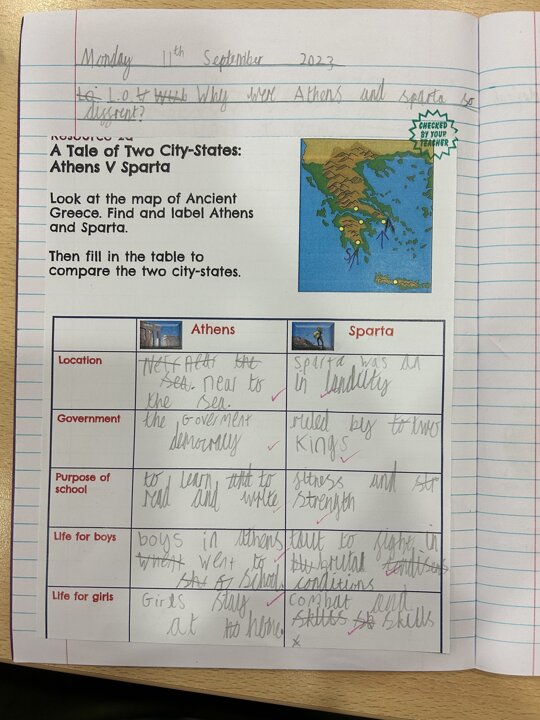 Monday 11th September 2023
L.O. Why were Athens and sparta so
diffrent?
CHECKED
BY YOUR
TEACHER
Resource 2a
A Tale of Two City-States:
Athens V Sparta
Look at the map of Ancient
Greece. Find and label Athens
and Sparta.
Then fill in the table to
compare the two city-states.
A
S
Athens Sparta
Location
Near the
sea. near to
the sea.
Sparta was an
in
Government
the Goverment
democracy
ruled by to two
Kings
Purpose of
school
to learn to
read and write
fitness and str
strength
Life for boys
boys in athens
whent went to
School
taut to fight in
brutal
conditions
Life for girls
Girls stay
at home.
Combat and
skills skills
x